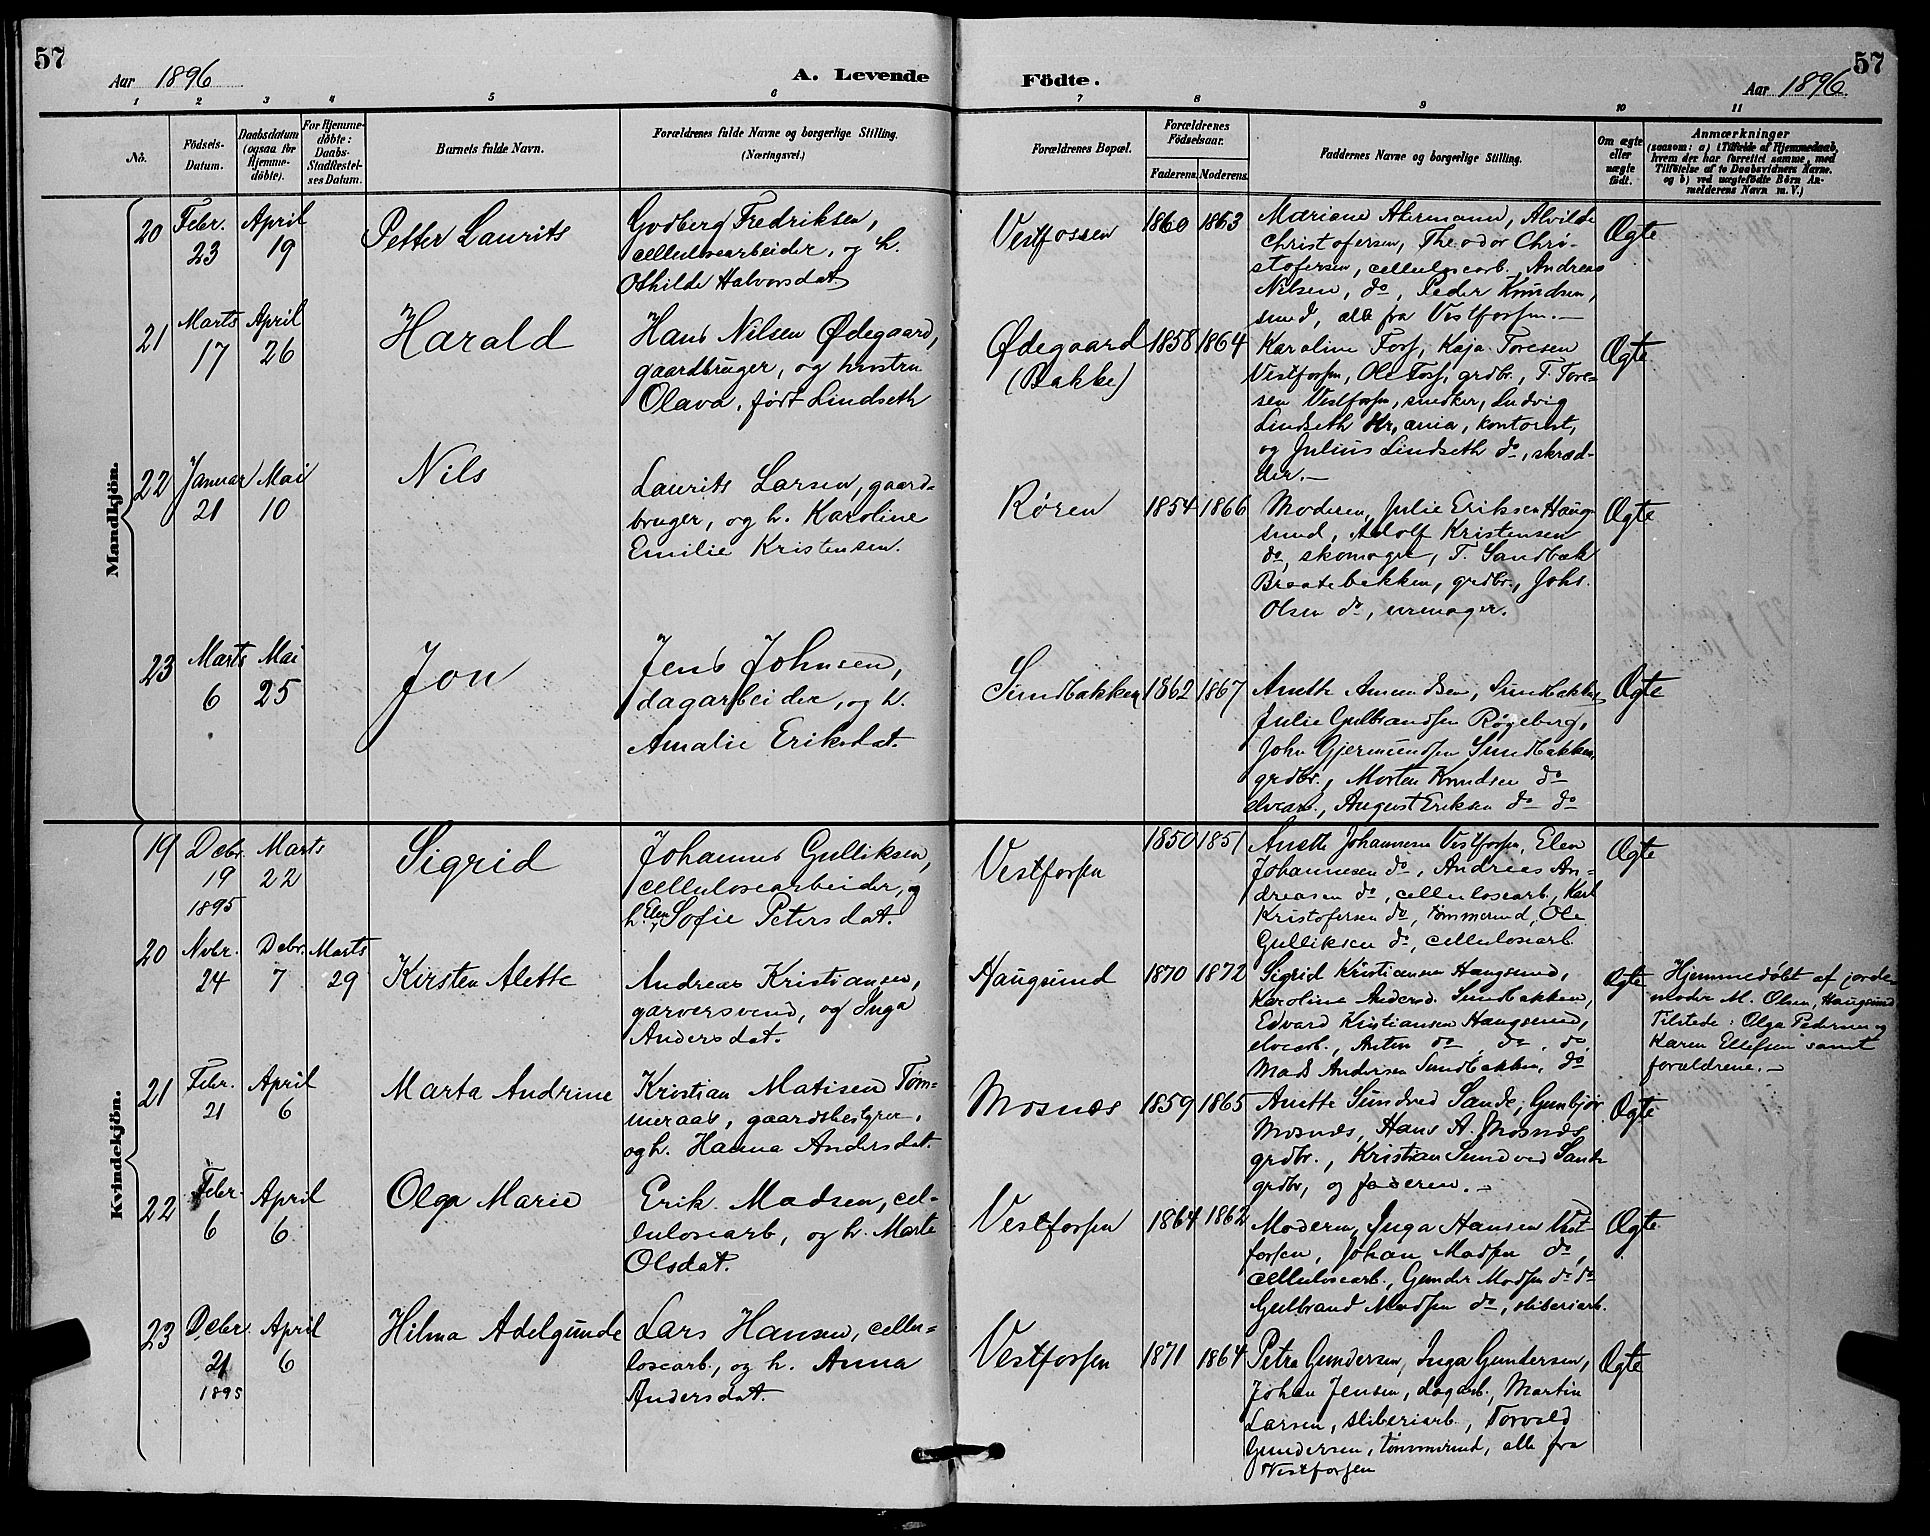 57
Aar 1896
A. Levende
Födte.
Aar 1896
57
1 2 3 4 5 6 7 8 9 10 11
No.
Födsels-
Datum.
Daabsdatum
(ogsaa for
Hjemme-
döbte).
For Hjemme-
döbte:
Daabs-
Stadfæstel-
ses Datum.
Barnets fulde Navn.
Forældrenes fulde Navne og borgerlige Stilling.
(Næringsvei.)
Forældrenes Bopæl.
Forældrenes
Födselsaar.
Faderens. Moderens.
Faddernes Navne og borgerlige Stilling.
Om ægte
eller
uægte
født.
Anmærkninger
(saasom: a) i Tilfælde af Hjemmedaab,
hvem der har forrettet samme, med
Tilföielse af to Daabsvidners Navne.
og b) ved uægtefödte Börn An-
melderens Navn m. V.)
Mandkjön.
20
Febr.
23
April
19
Petter Laurits
Godberg Fredriksen,
cellulosearbeider, og h.
Othilde Halvorsdat.
Vestfossen
1860 1863
Mariane Akermann, Alvilde
Christofersen, Theodor Chri-
stofersen, cellulosearb., Andreas
Nilsen, do, Peder Knudsen,
smed, alle fra Vestfossen.
Ægte
21
Marts
17
April
26
Harald
Hans Nilsen Ødegaard,
gaardbruger, og hustru
Olava, født Lindseth
Ødegaard
(Bakke)
1858 1864
Karoline Foss, Kaja Toresen
Vestfossen, Ole Foss, grdbr., T. Tore-
sen Vestfossen, snedker, Ludvig
Lindseth Kr,ania, kontorist,
og Julius Lindseth do, skræd-
der.
Ægte
22
Januar
21
Mai
10
Nils
Laurits Larsen, gaard-
bruger, og h. Karoline
Emilie Kristensen.
Røren
1854 1866
Moderen, Julie Eriksen Haug-
sund, Adolf Kristensen
do, skomager, T. Sandbæk
Braatebakken, grdbr., Johs.
Olsen do, urmager.
Ægte
23
Marts
6
Mai
25
Jon
Jens Johnsen,
dagarbeider, og h.
Amalie Eriksdat.
Sundbakken
1862 1867
Anette Amundsen, Sundbakken
Julie Gulbrandsen Røgeberg,
John Gjermundsen Sundbakken,
grdbr., Morten Knudsen do
elvearb., August Eriksen do do
Ægte
Kvindekjön.
19
Debr.
19
1895
Marts
22
Sigrid
Johannes Gulliksen,
cellulosearbeider, og
h. Elen Sofie Petersdat.
Vestfossen
1850 1851
Anette Johannesen Vestfossen, Elen
Johannesen do, Andreas An-
dreasen do, cellulosearb., Karl
Kristofersen do, tømmermd, Ole
Gulliksen do, cellulosearb
Ægte
20
Novbr.
24
Debr.
7
Marts
29
Kirsten Alette
Andreas Kristiansen,
garversvend, og Inga
Andersdat.
Haugsund
1870 1872
Sigrid Kristiansen Haugsund,
Karoline Andersd. Sundbakken,
Edvard Kristiansen Haugsund,
elvearb., Anton do do, do,
Mads Andersen Sundbakken, do
Ægte
Hjemmedøbt af jorde-
moder M. Olsen, Haugsund
Tilstede: Olga Pedersen og
Karen Ellefsen samt
forældrene.
21
Febr.
21
April
6
Marta Andrine
Kristian Matisen Tøm-
meraas, gaardsbestyrer,
og h. Hanna Andersdat.
Mosnæs
1859 1865
Anette Sundved Sande, Gunbjør
Mosnæs, Hans A. Mosnæs
grdbr., Kristian Sundved Sande
grdbr, og faderen.
Ægte
22
Febr.
6
April
6
Olga Marie
Erik Madsen, cel-
lulosearb, og h. Marte
Olsdat.
Vestfossen
1864 1862
Moderen, Inga Hansen Vest-
fossen, Johan Madsen do,
cellulosearb., Gunder Madsen do do
Gulbrand Madsen do, sliberiarb.
Ægte
23
Debr.
21
1895
April
6
Hilma Adelgunde
Lars Hansen, cellu-
losearb., og h. Anna
Andersdat.
Vestfossen
1871 1864
Petra Gundersen, Inga Gundersen,
Johan Jensen, dagarb., Martin
Larsen, sliberiarb., Torvald
Gundersen, tømmermd, alle fra
Vestfossen
Ægte